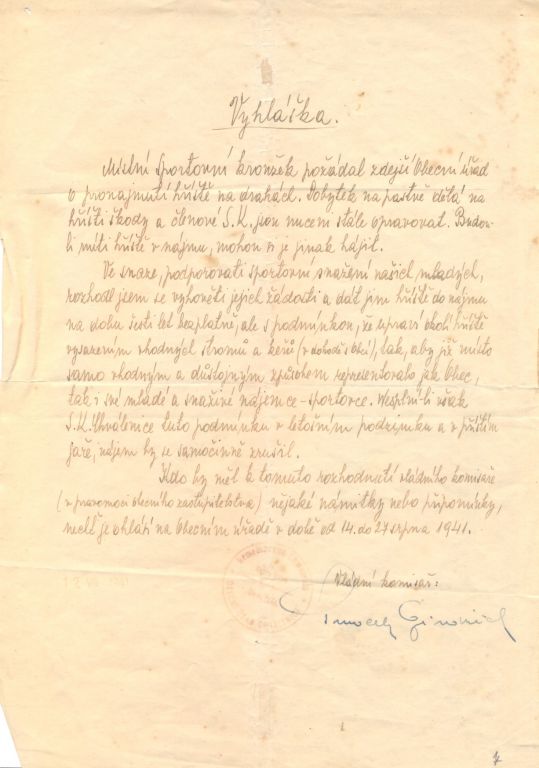 Vyhláška.
Místní Sportovní kroužek požádal zdejší Obecní úřad
o pronajmutí hřiště na drahách. Dobytek na pastvě dělá na
hřišti škody a členové S.K. jsou nuceni stále opravovat. Budou-
li míti hřiště v nájmu, mohou si je jinak hájit.
Ve snaze, podporovati sportovní snažení našich mladých,
rozhodl jsem se vyhověti jejich žádosti a dát jim hřiště do nájmu
na dobu šesti let bezplatně, ale s podmínkou, že upraví okolí hřiště
vysazením vhodných stromů a keřů (v dohodě s obcí), tak, aby již místo
samo vhodným a důstojným způsobem representovalo jak Obec,
tak i své mladé a snaživé nájemce-sportovce. Nesplní-li však
S.K. Chválenice tuto podmínku v letošním podzimku a v příštím
jaře, nájem by se samočinně zrušil.
Kdo by měl k tomuto rozhodnutí vládního komisaře
(v pravomoci obecního zastupitelstva) nějaké námitky nebo připomínky,
nechť je ohlásí na Obecním úřadě v době od 14. do 27 srpna 1941.
Vládní komisař:
7